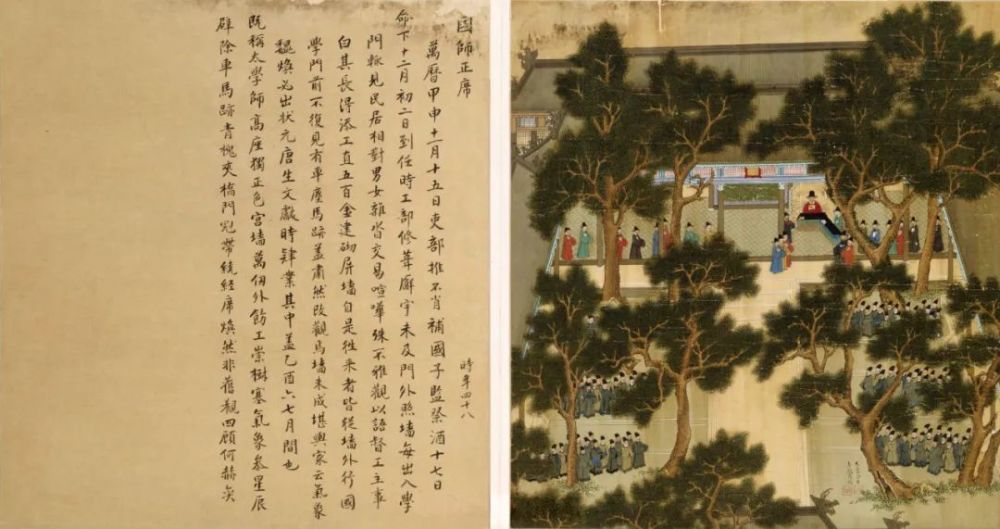 國師正席
萬曆甲申十一月十五日吏部推不肖補國子監祭酒十七日
時年四十八
命下十二月初二日到任時工部修葺廨宇未及門外照墻每出入學
門輒見民居相對男女雜沓交易喧嘩殊不雅觀以語督工主事
白其長得添工直五百金建砌屏墻自是往來者皆從墻外行國
學門前不復見有車塵馬跡蓋肅然改觀焉墻未成堪輿家云氣象
魏煥必出狀元唐生文獻時肄業其中蓋乙酉六七月間也
既稱太學師高座獨正色宮墻萬仞外飭工崇樹塞氣象參星辰
辟除車馬跡青槐夾橋門冠帶繞經席煥然非舊觀四顧何赫奕